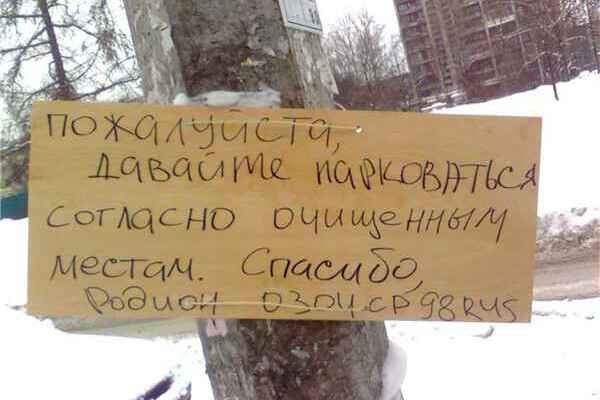 пожалуйста,
давайте парковаться
согласно очищенным
местам. Спасибо,
Родион 0304 СР 98RUS